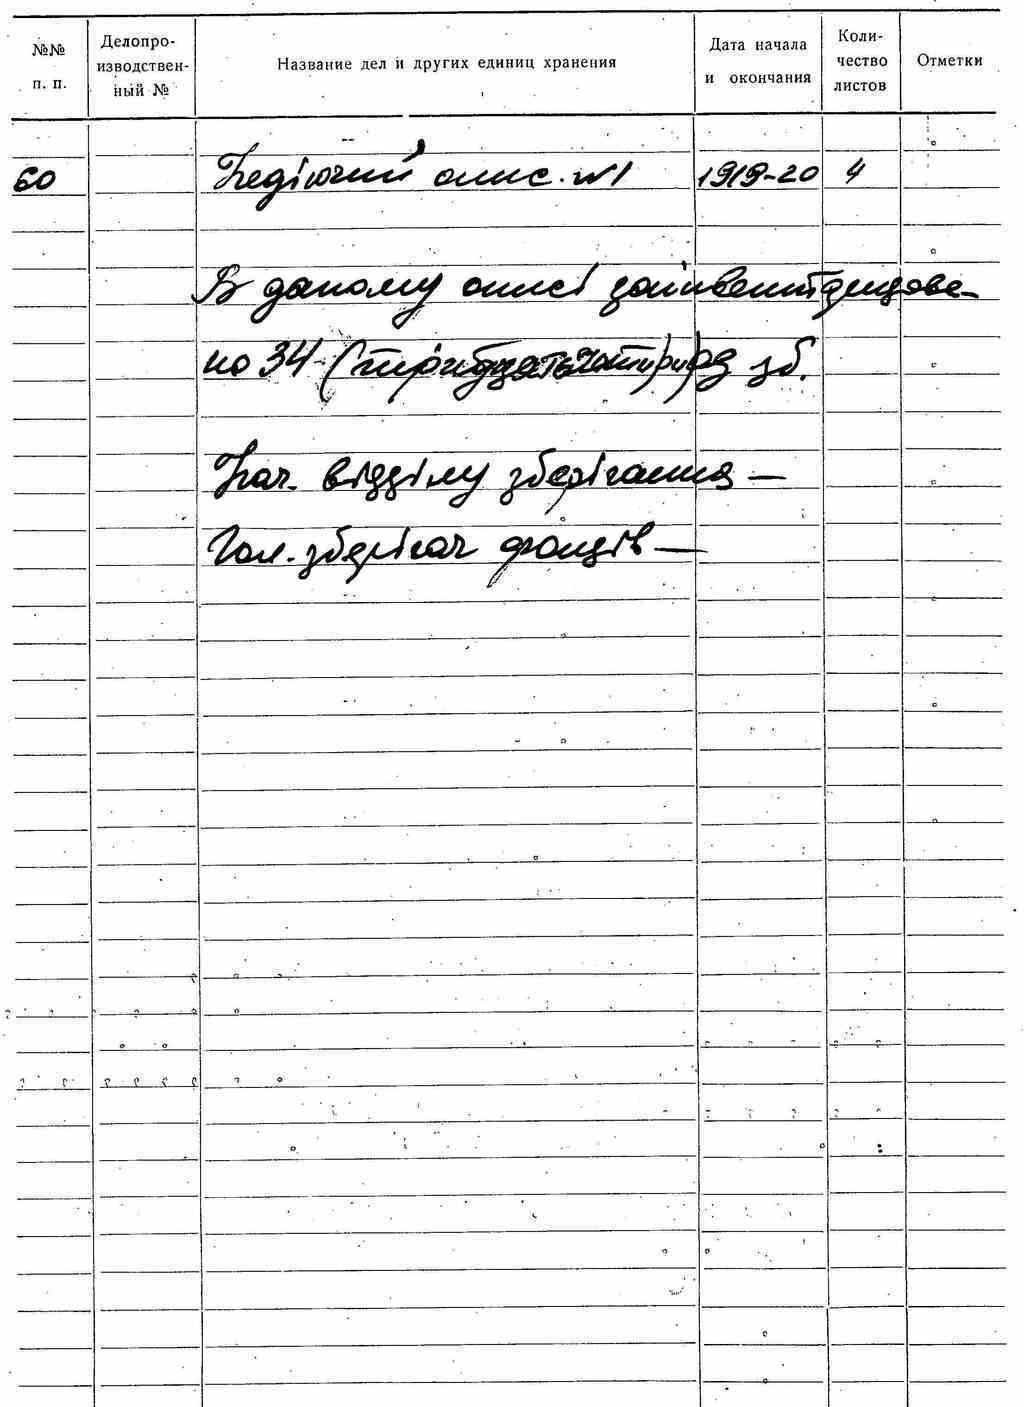 №№ п. п.
Делопро-изводствен-ный №
Название дел и других единиц хранения
Дата начала и окончания
Коли-чество листов
Отметки
60 Недіючий опис №1 1919-20 4
В даному описі заінвентаризова-
но 34 (тридцять чотири) од зб.
Нач. відділу зберігання —
Гол. зберігач фондів —